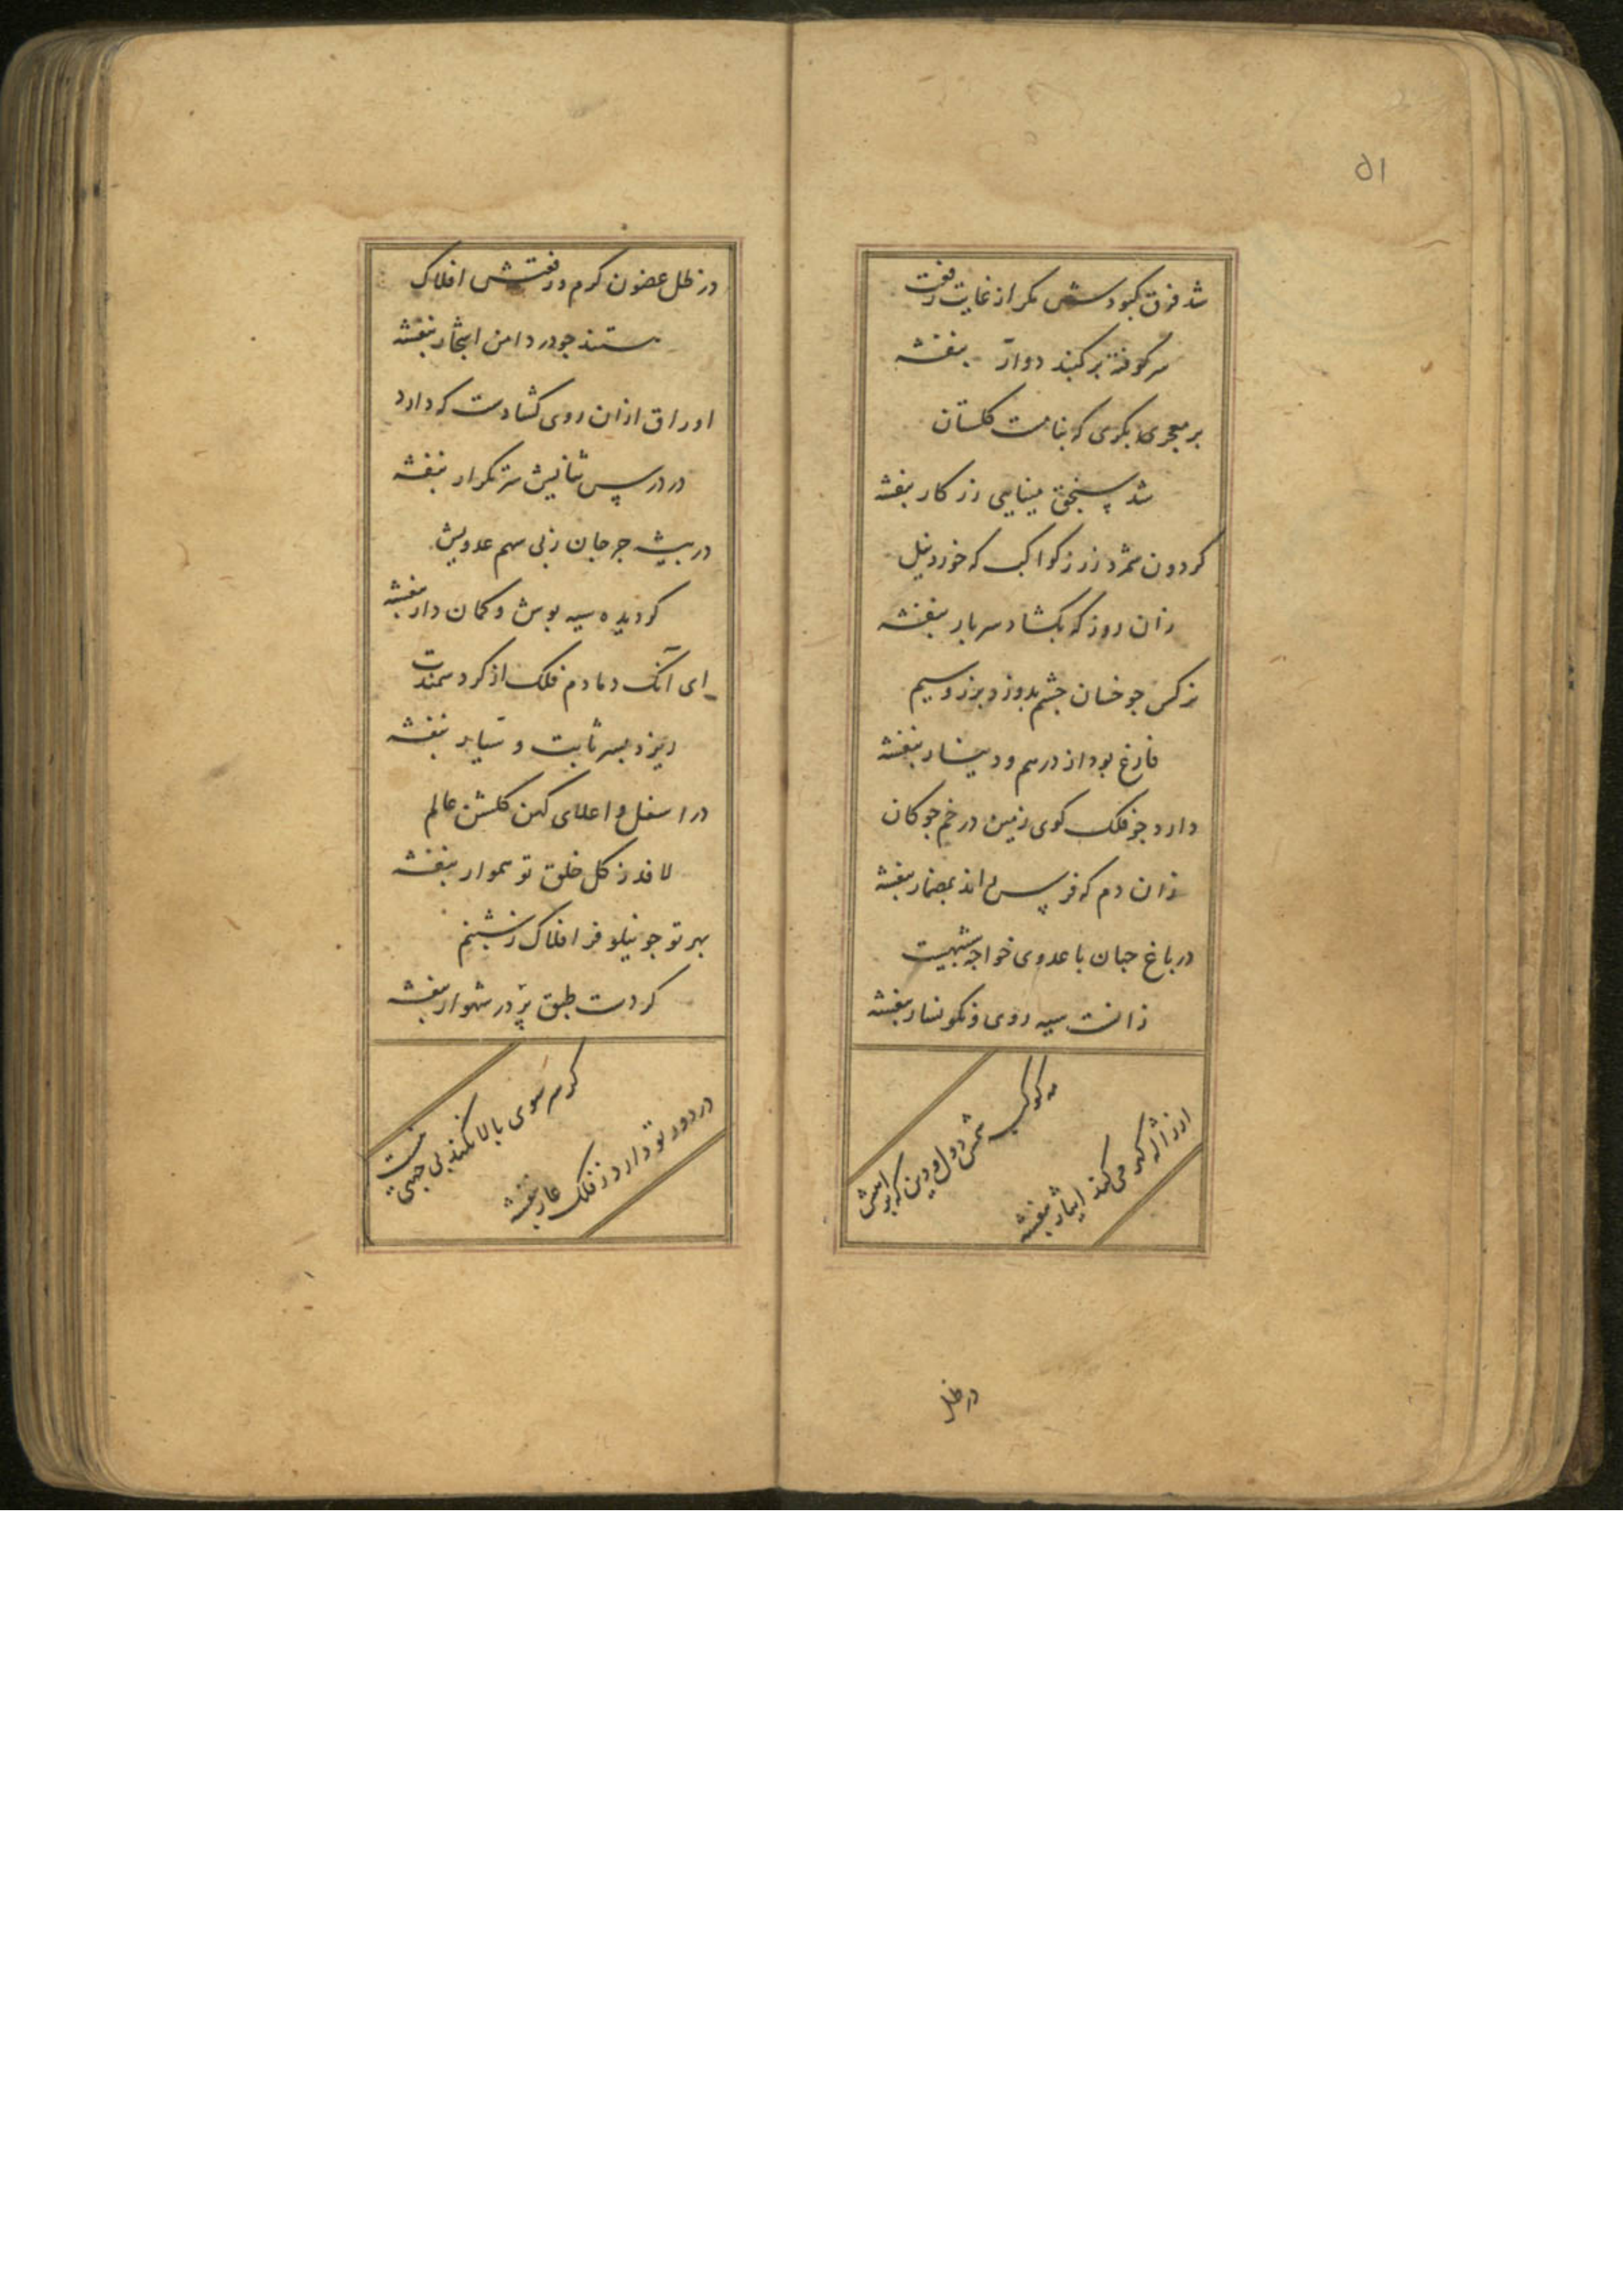 ۵۱
شد فرق کبودش مکر از غایت رفعت
سرکوفته بر کنبد دوار بنفشه
بر معجری بکری که بنامست کلستان
شد سنجق مینایی زرکار بنفشه
کردون شمرد زر ز کواکب که خورد نیل
زان روز که بکشاد سر بار بنفشه
نرکس جو خسان جشم بدوزد بزر و سیم
فارغ بود از درهم و دینار بنفشه
دارد جو فلک کوی زمین در خم جوکان
زان دم که فرس راند بمضمار بنفشه
در باغ جهان با عدوی خواجه شبهیست
زانست سیه روی و نکونسار بنفشه
مه کوکبه شمس دول و دین که براهش
از ژاله کهر می کند ایثار بنفشه
در ظل
در ظل غصون کرم و رفعتش افلاک
هستند جو در دامن اشجار بنفشه
اوراق ازان روی کشادست که دارد
در درس ثنائیش سر تکرار بنفشه
در بیشه جرجان ز پی سهم عدویش
کردیده سیه پوش و کمان دار بنفشه
ای آنک دمادم فلک از کرد سمندت
ریزد بسر ثابت و سیار بنفشه
در اسفل و اعلای کهن کلشن عالم
لافد ز کل خلق تو هموار بنفشه
بهر تو جو نیلوفر افلاک ز شبنم
کردست طبق پر در شهوار بنفشه
کر سر سوی بالا نکند بی جهتی نیست
در دور تو دارد ز فلک عار بنفشه